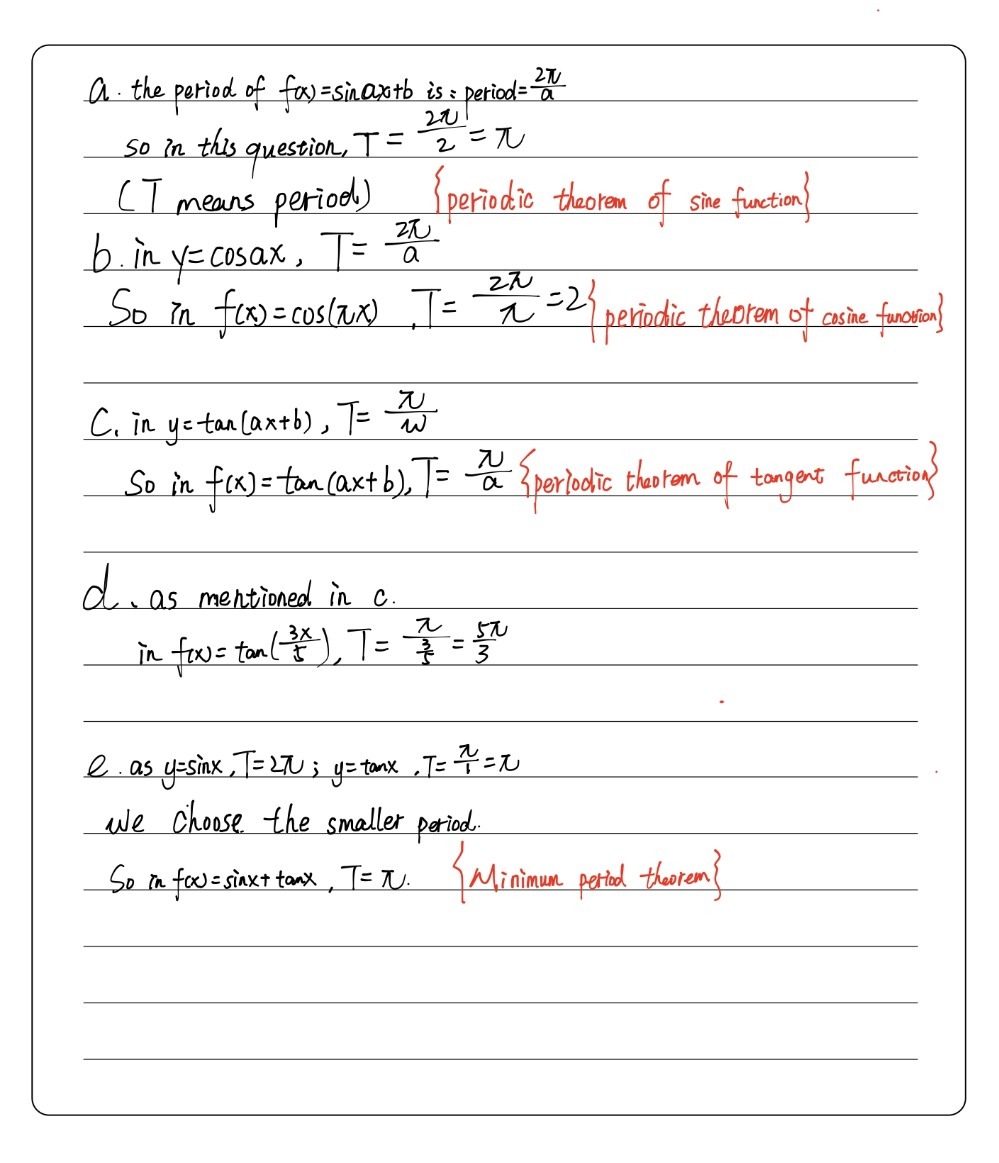 a. the period of f(x)=sinax+b is: period=2π/a
so in this question, T = 2π/2 = π
(T means period) {periodic theorem of sine function}
b. in y=cosax, T= 2π/a
So in f(x)=cos(πx), T= 2π/π =2 {periodic theorem of cosine function}
C. in y=tan(ax+b), T= π/w
So in f(x)=tan(ax+b), T= π/a {periodic theorem of tangent function}
d. as mentioned in c.
in f(x)= tan(3x/5), T= π/(3/5) = 5π/3
e. as y=sinx, T=2π; y=tanx, T= π/1 =π
we choose the smaller period.
So in f(x)=sinx+tanx, T=π. {Minimum period theorem}